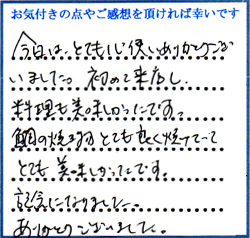 お気付きの点やご感想を頂ければ幸いです
今日は、とても心使いありがとうござ
いました。初めて来店し、
料理も美味しかったです。
鯛の焼き物がとても良く焼けてって
とても美味しかったです。
記念になりました。
ありがとうございました。